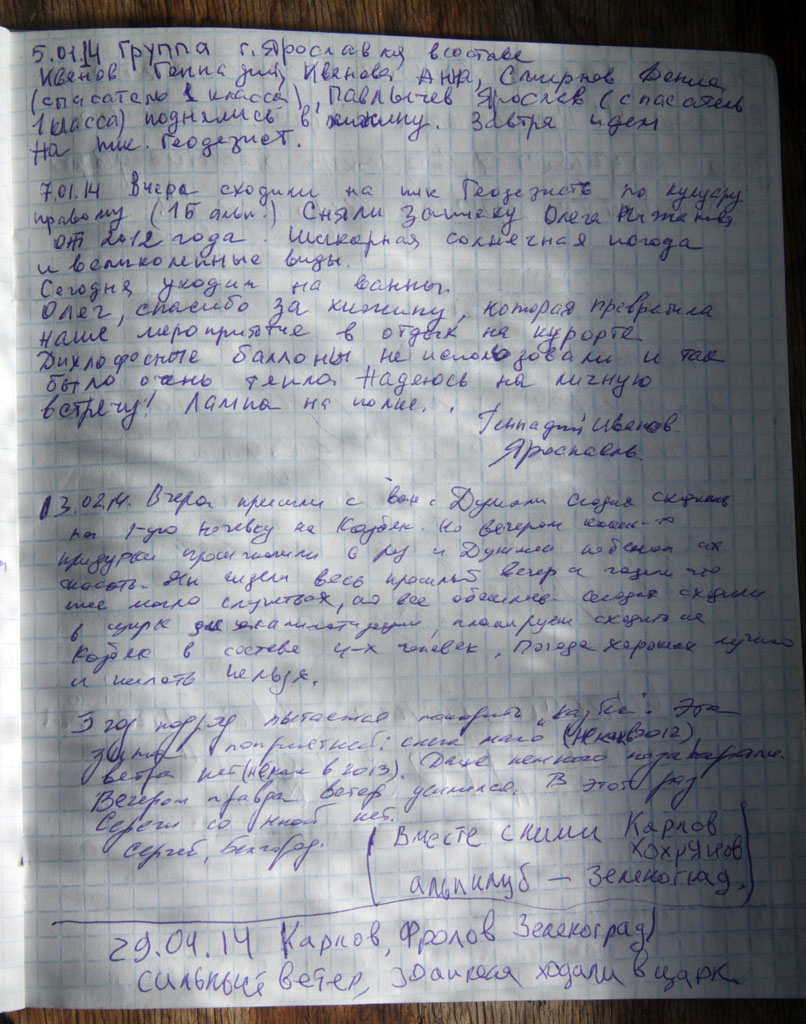 5.01.14 Группа г. Ярославля в составе
Иванов Геннадий, Иванова Анна, Смирнов
(спасатель 1 класса), Павлычев Ярослав (спасатель
1 класса) поднялись в хижину. Завтра идем
на пик. Геодезист.
7.01.14 Вчера сходили на пик Геодезистъ по кулуару
правому (1Б альп.) Сняли записку Олега Рыженова
от 2012 года. Шикарная солнечная погода
и великолепные виды.
Сегодня уходим на ванны.
Олег, спасибо за хижину, которая превратила
наше мероприятие в отдых на курорте
Дихлофосные баллоны не использовали и так
было очень тепло. Надеюсь на личную
встречу! Лампа на полке. .
Геннадий Иванов.
Ярославль.
13.02.14. Вчера пришли с Думали сходить
на 1-ую ночевку на Казбек. Но вечером
придурки просигналили 6 раз и Думали побежали их
спасать. весь прошлый вечер и гадали что
же могло случиться, но все обошлось. сегодня сходили
в цирк для акклиматизации, планируем сходить на
Казбек в составе 4-х человек, Погода хорошая лучшего
и желать нельзя.
3 год подряд пытаемся покорить "Казбек". Эта
зима поприятней: снега мало (не как в 2012),
ветра нет (не как в 2013). Даже немного позагорали.
Вечером правда ветер усилился. В этот раз
Сереги со мной нет.
Сергей, Белгород.
Вместе с ними Карпов
Хохряков
альпклуб — Зеленоград
29.04.14 Карпов, Фролов Зеленоград)
сильный ветер, ходили в царк